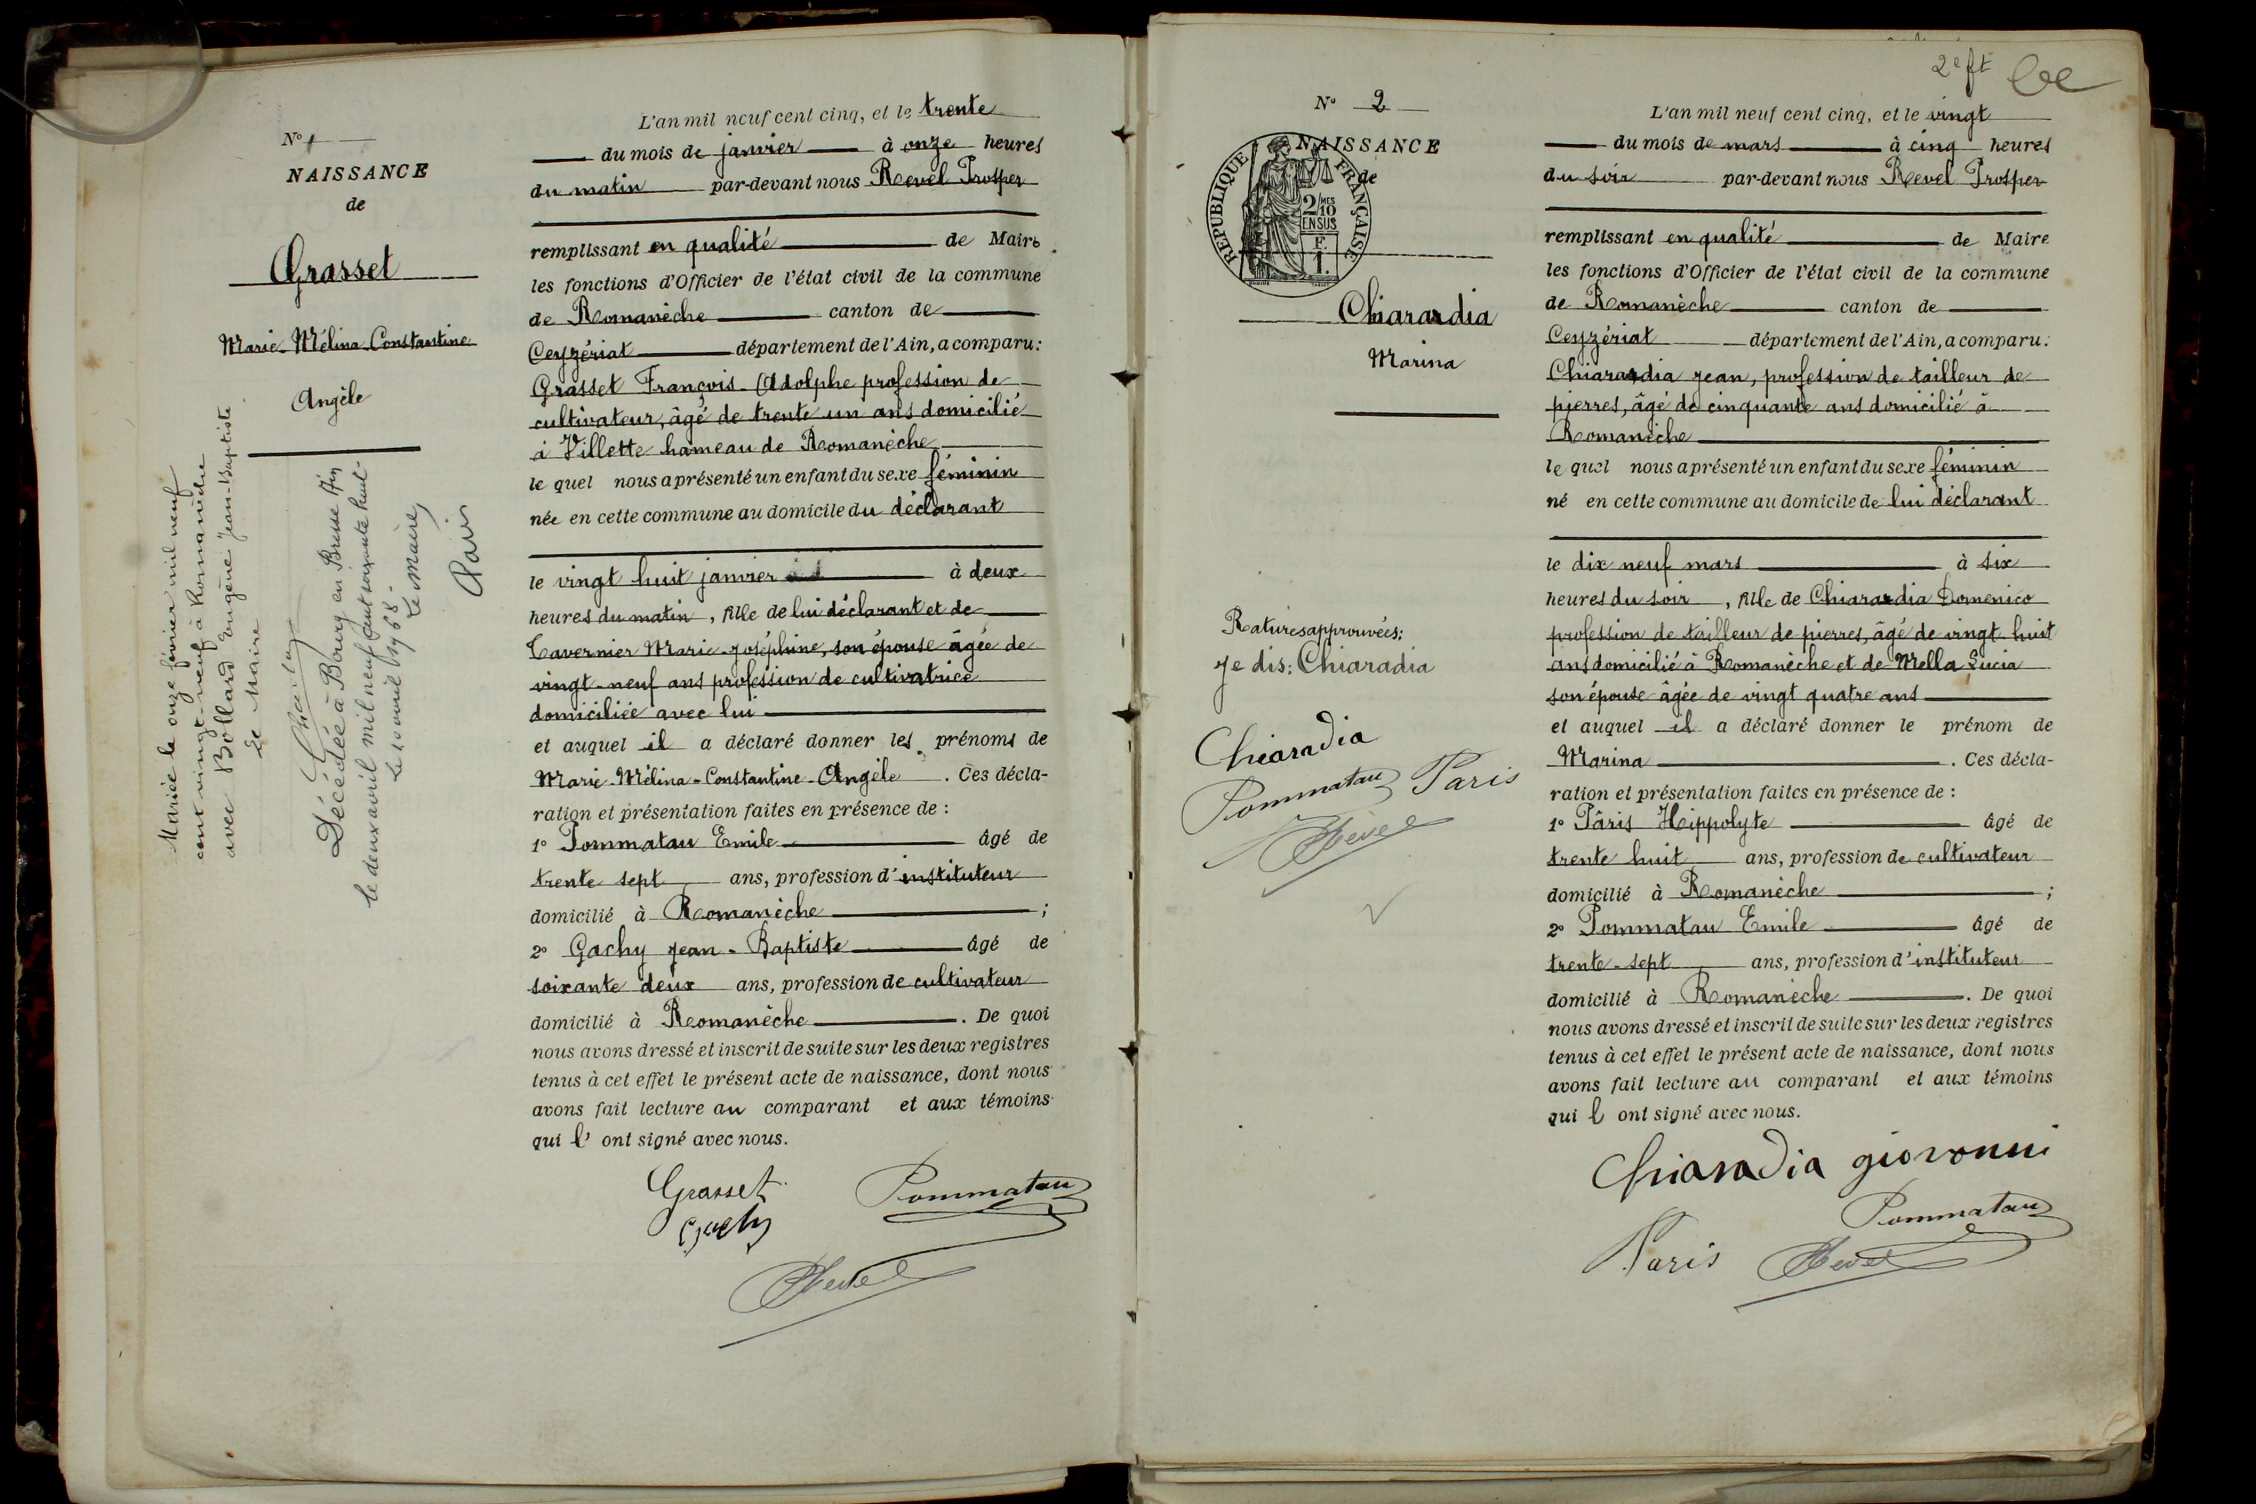 N° 1
NAISSANCE
de
Grasset
Marie-Mélina-Constantine
Angèle
Mariée le onze février mil neuf
cent vingt-neuf à Romanèche
avec Bollard Eugène Jean-Baptiste
Le Maire
Décédée à Bourg en Bresse Ain
le deux avril mil neuf cent soixante huit-
Le 10 avril 1968-
Le Maire,
L'an mil neuf cent cinq, et le trente
du mois de janvier à onze heures
du matin par-devant nous Revel Prosper
remplissant en qualité de Maire
les fonctions d'Officier de l'état civil de la commune
de Romanèche canton de
Ceyzériat département de l'Ain, a comparu:
Grasset François-Adolphe profession de
cultivateur, âgé de trente un ans domicilié
à Villette hameau de Romanèche
le quel nous a présenté un enfant du sexe féminin
née en cette commune au domicile du déclarant
le vingt huit janvier à deux
heures du matin, fille de lui déclarant et de
Tavernier Marie-Joséphine, son épouse âgée de
vingt-neuf ans profession de cultivatrice
domiciliée avec lui
et auquel il a déclaré donner les prénoms de
Marie-Mélina-Constantine-Angèle. Ces décla-
ration et présentation faites en présence de :
1° Pommatau Emile âgé de
trente sept ans, profession d'instituteur
domicilié à Romanèche ;
2° Gachy Jean-Baptiste âgé de
soixante deux ans, profession de cultivateur
domicilié à Romanèche. De quoi
nous avons dressé et inscrit de suite sur les deux registres
tenus à cet effet le présent acte de naissance, dont nous
avons fait lecture au comparant et aux témoins
qui l' ont signé avec nous.
Grasset Pommatau
Gachy
Revel
2e ft
N° 2
NAISSANCE
de
REPUBLIQUE FRANÇAISE
2/10 MES
EN SUS
F.
1.
Chiarardia
Marina
Ratures approuvées:
Je dis: Chiaradia
Chiaradia
Pommatau Paris
Revel
L'an mil neuf cent cinq, et le vingt
du mois de mars à cinq heures
du soir par-devant nous Revel Prosper
remplissant en qualité de Maire
les fonctions d'Officier de l'état civil de la commune
de Romanèche canton de
Ceyzériat département de l'Ain, a comparu:
Chiarardia Jean, profession de tailleur de
pierres, âgé de cinquante ans domicilié à
Romanèche
le quel nous a présenté un enfant du sexe féminin
né en cette commune au domicile de lui déclarant
le dix neuf mars à six
heures du soir, fille de Chiarardia Domenico
profession de tailleur de pierres, âgé de vingt huit
ans domicilié à Romanèche et de Mella Lucia
son épouse âgée de vingt quatre ans
et auquel il a déclaré donner le prénom de
Marina. Ces décla-
ration et présentation faites en présence de :
1° Pâris Hippolyte âgé de
trente huit ans, profession de cultivateur
domicilié à Romanèche ;
2° Pommatau Emile âgé de
trente-sept ans, profession d'instituteur
domicilié à Romanèche. De quoi
nous avons dressé et inscrit de suite sur les deux registres
tenus à cet effet le présent acte de naissance, dont nous
avons fait lecture au comparant et aux témoins
qui l ont signé avec nous.
Chiaradia giovonni
Pommatau
Paris Revel